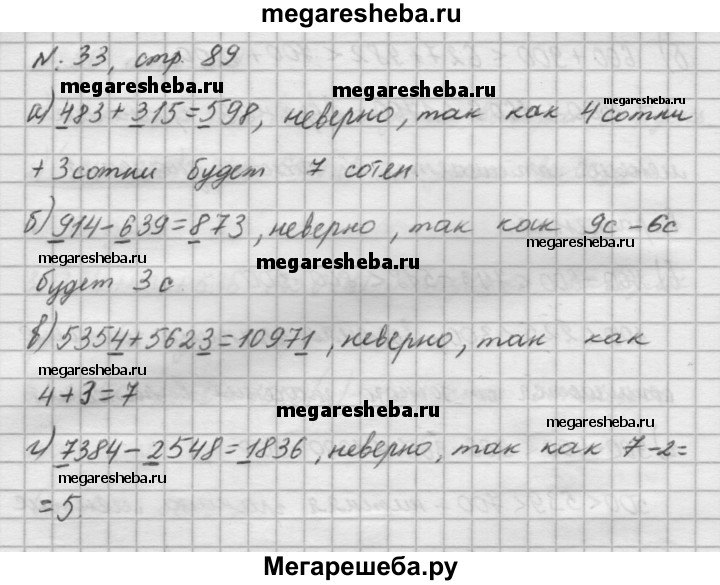 megaresheba.ru
№ 33, стр. 89
megaresheba.ru megaresheba.ru megaresheba.ru
а) 483+315=598, неверно, так как 4 сотни
+ 3 сотни будет 7 сотен.
б) 914-639=873, неверно, так как 9с-6с
megaresheba.ru megaresheba.ru megaresheba.ru
будет 3с.
в) 5354+5623=10971, неверно, так как
megaresheba.ru
4+3=7
megaresheba.ru megaresheba.ru
г) 7384-2548=1836, неверно, так как 7-2=
megaresheba.ru
=5.
Мегарешеба.ру